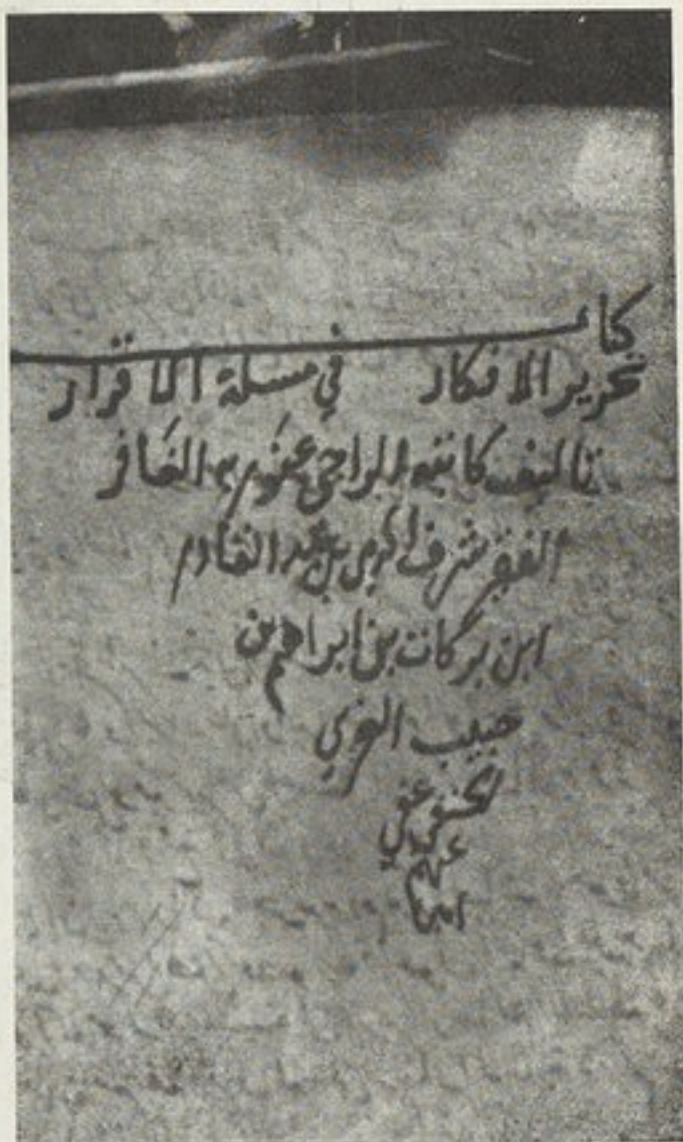 كتاب
تحرير الافكار في مسئلة الاقرار
تاليف كاتبه الراجي عفو ربه الغافر
الفقير شرف الدين بن عبد القادر
ابن بركات بن ابراهيم بن
حبيب الغزي
الحنفي عفي
عنهم
امين